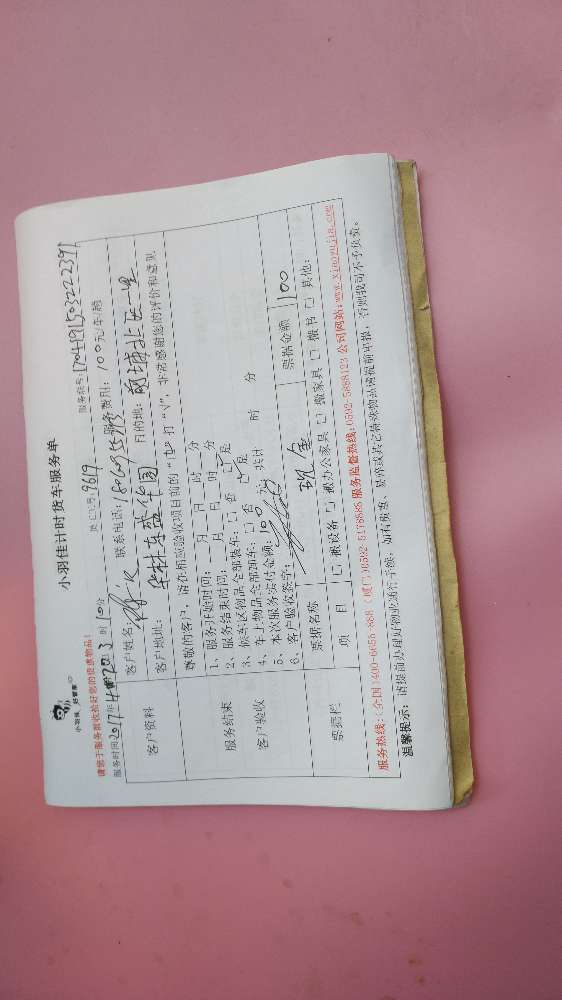 小羽佳计时货车服务单
小羽佳，好管家
请您于服务前收拾好您的贵重物品！
服务时间2017年4月20日 时10分
9619
服务单号:170419150322239
客户资料
客户姓名:
联系电话:
服务费用: 100元/车/趟
客户地址:
华林东盛华园
目的地:
服务结束
客户验收
尊敬的客户，请在相应验收项目前的“□”打“√”，非常感谢您的评价和意见
1、服务开始时间: 月 日 时 分
2、服务结束时间: 月 日 时 分
3、候车区物品全部装车: □否 □是
4、车上物品全部卸车: □否 □是
5、本次服务实付金额: 100 元, 共计 时 分
6、客户验收签字:
票据栏
票据名称
现金
票据金额
100
项 目
□搬设备 □搬办公家具 □搬家具 □搬马 □其他:
服务热线:(全国)400-6656-888 (厦门)0592-5118885 服务监督热线:0592-5888123 公司网站:www.xiaoyujia.com
温馨提示: 请提前办理好物业通行手续，如有贵重、易碎或其它特殊物品请提前申报，否则我司不予负责。